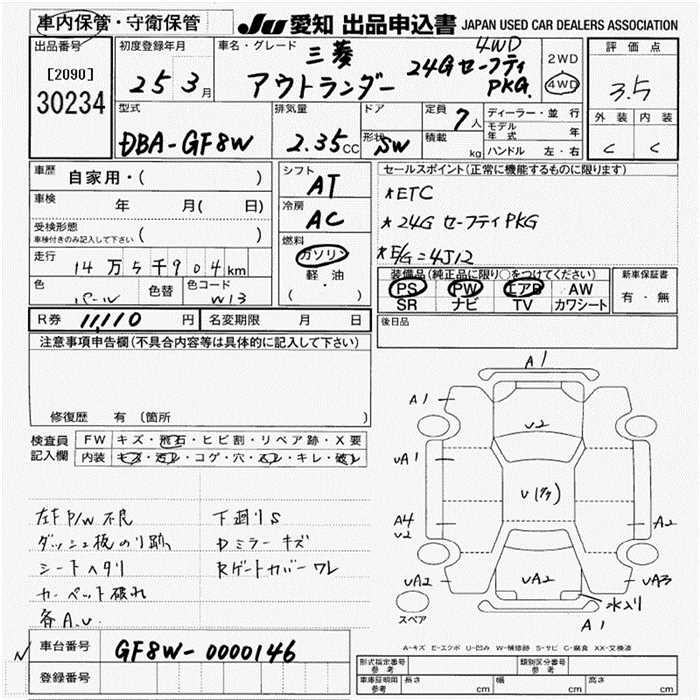 車内保管・守衛保管 JU 愛知 出品申込書 JAPAN USED CAR DEALERS ASSOCIATION
出品番号 初度登録年月 車名・グレード 三菱 4WD 2WD 評価点
[2090] 25 3月 アウトランダー 24G セーフティ PKG. 4WD 3.5
30234
型式 排気量 ドア 定員 7人 ディーラー・並行 外装 内装
DBA-GF8W 2.35CC 形状 SW 積載 kg モデル年式 年 C C
ハンドル 左・右
車歴 自家用・( ) シフト AT セールスポイント(正常に機能するものに限ります)
車検 年 月( 日) 冷房 AC *ETC
受検形態 ( ) *24G セーフティPKG
車検付きのみ記入して下さい
燃料 ガソリン *E/G=4J12
走行 14万5千904km 軽油 装備品(純正品に限り○をつけてください) 新車保証書
色 パール 色替 色コード W13 ( ・ ) PS PW エアB AW 有・無
SR ナビ TV カワシート
R券 11,110 円 名変期限 月 日 後日品
注意事項申告欄(不具合内容等は具体的に記入して下さい)
修復歴 有 (箇所 )
検査員 FW キズ・飛石・ヒビ割・リペア跡・X要
記入欄 内装 キズ・汚レ・コゲ・穴・スレ・キレ・破レ
左F P/W 不良 下廻りS
ダッシュ板のり跡 Dミラー キズ
シートヘタリ Rゲートカバー ワレ
カーペット破れ
各A.U
A1
A1
U2
UA1
U(779)
A4 A2
U2
UA2 UA2 UA3
水入り
スペア A1
A-キズ E-エクボ U-凹み W-補修跡 S-サビ C-腐食 XX-交換済
N 車台番号 GF8W-0000146
登録番号
形式指定番号 参考 類別区分番号 参考
車庫証明用 参考 長さ cm 幅 cm 高さ cm